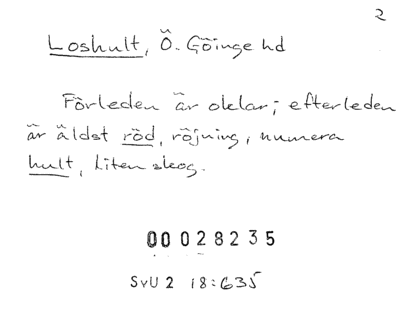 2
Loshult, Ö. Göinge hd
Förleden är oklar; efterleden
är äldst röd, röjning, numera
hult, liten skog.
00 028235
SvU 2 18:635